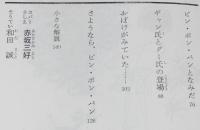 ピン・ポン・バンとなみだ 76
ギャン氏とグー氏の登場 88
おばけがみていた…… 103
さようなら、ピン・ポン・バン 126
小さな解説 149
さしえ 赤坂三好
そうてい 和田 誠